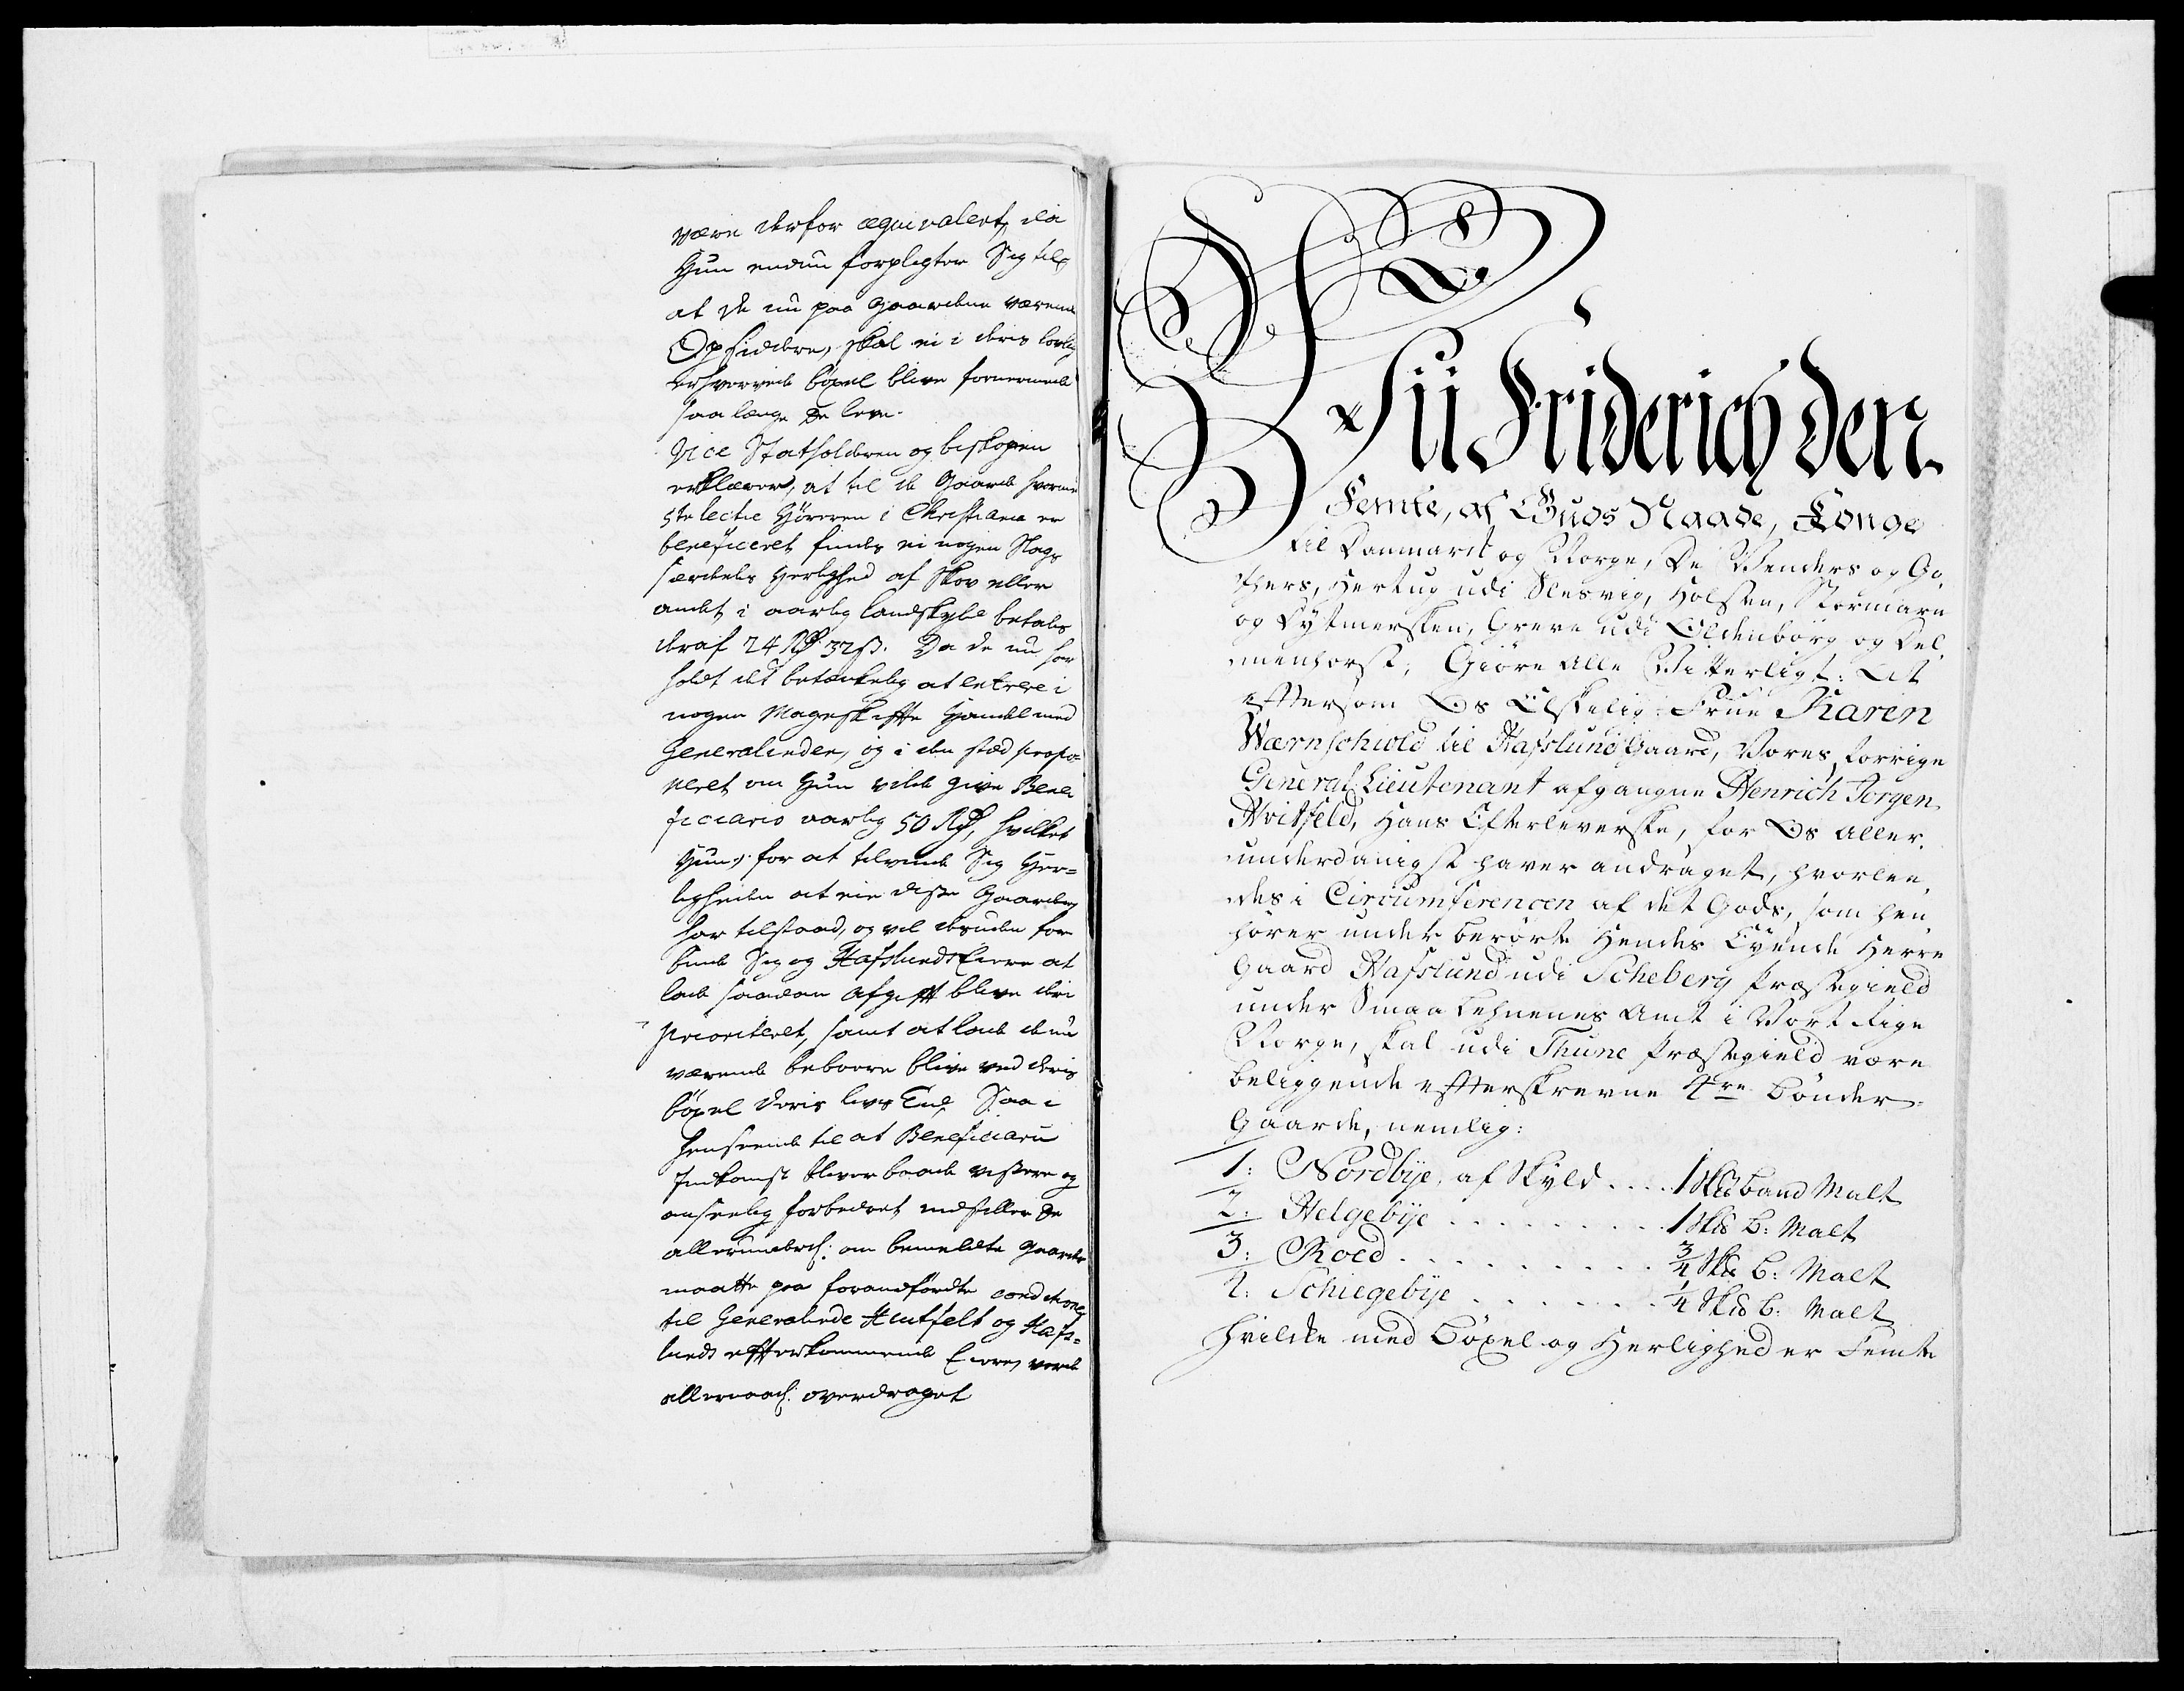 være derfor æqvivalent, da
Hun endnu forpligter Sig til,
at de nu paa Gaardene værende
Opsiddere, skal ei i deris lovlig
erhvervede böxel blive fornermede
saa længe De leve.
Vice Statholderen og biskopen
erklærer, at til de Gaarde hvormed
5te lectie Höreren i Christiania er
beneficeret findes ei nogen Slags
særdeles Herlighed af Skov eller
andet, i aarlig landskyld betales
deraf 24 Rd 32 s. Da de nu har
holdt det betænkelig at entrere i
nogen Mageskifte Handel med
Generalinden, og i den stæd propo-
neret om Hun vilde give Bene
ficiario aarlig 50 Rd, hvilket
Hun, for at tilvende Sig Her-
ligheden at eie disse Gaarder
har tilstaaed, og vil desuden for
binde Sig og Hafslunds Eiere at
lade saadan Afgift blive deri
prioriteret, samt at lade de nu
værende beboere blive ved deris
böxel deris livs Tiid, Saa i
henseende til at Beneficiarii
Indkomst bliver baade vissere og
anseelig forbedret indstiller De
allerunderd: om bemeldte Gaarder
maatte paa forandfördte conditioner
til Generalinde Huitfelt og Hafs-
lunds efterkommende Eiere, vorde
allernaad: overdraget
Wii Friderich den
Femte, af Guds Naade, Konge
til Danmark og Norge, De Venders og Go-
thers, Hertug udi Slesvig, Holsten, Stormarn
og Dytmersken, Greve udi Oldenborg og Del-
menhorst, Giöre Alle Vitterligt: At
eftersom Os Elskelig Frue Karen
Wærnschiold til Hafslund Gaard, Vores forrige
General Lieutenant afgangne Henrich Jorgen
Hvitfeld, Hans Efterleverske, for Os aller-
underdanigst haver andraget, hvorlee-
des i Circumferencen af det Gods, som hen
hörer under berörte Hendes Eyende Herre
Gaard Hafslund udi Scheberg Præstegield
under Smaa Lehnenes Amt i Vort Rige
Norge, skal udi Thune Præstegield være
beliggende efterskrevne 4re Bönder-
Gaarde, nemlig:
1: Nordbye, af Skyld .... 1 Skd Band Malt
2: Helgebye ......... 1 Skd B: Malt
3: Roed .......... 3/4 Skd B: Malt
4: Schiegebye ....... 1/4 Skd B: Malt
hvilcke med Böxel og Herlighed er Femte